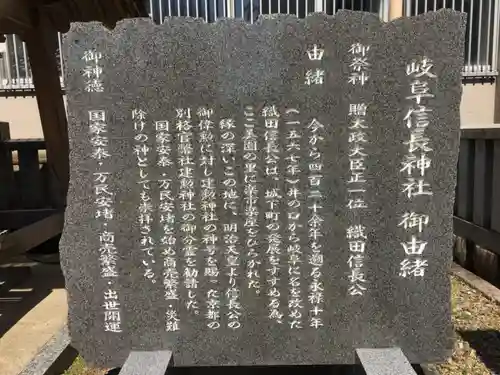 岐阜信長神社 御由緒
御祭神 贈太政大臣正一位 織田信長公
由緒
今から四百三十余年を遡る永禄十年
(一五六七年)井の口から岐阜に名を改めた
織田信長公は、城下町の発展をすすめる為、
ここ美園の里に楽市楽座をひらかれた。
縁の深いこの地に、明治天皇より信長公の
御偉勲に対し建勲神社の神号を賜った京都の
別格官幣社建勲神社の御分霊を勧請した。
国家安泰・万民安堵を始め商売繁盛・災難
除けの神としても崇拝されている。
御神徳 国家安泰・万民安堵・商売繁盛・出世開運